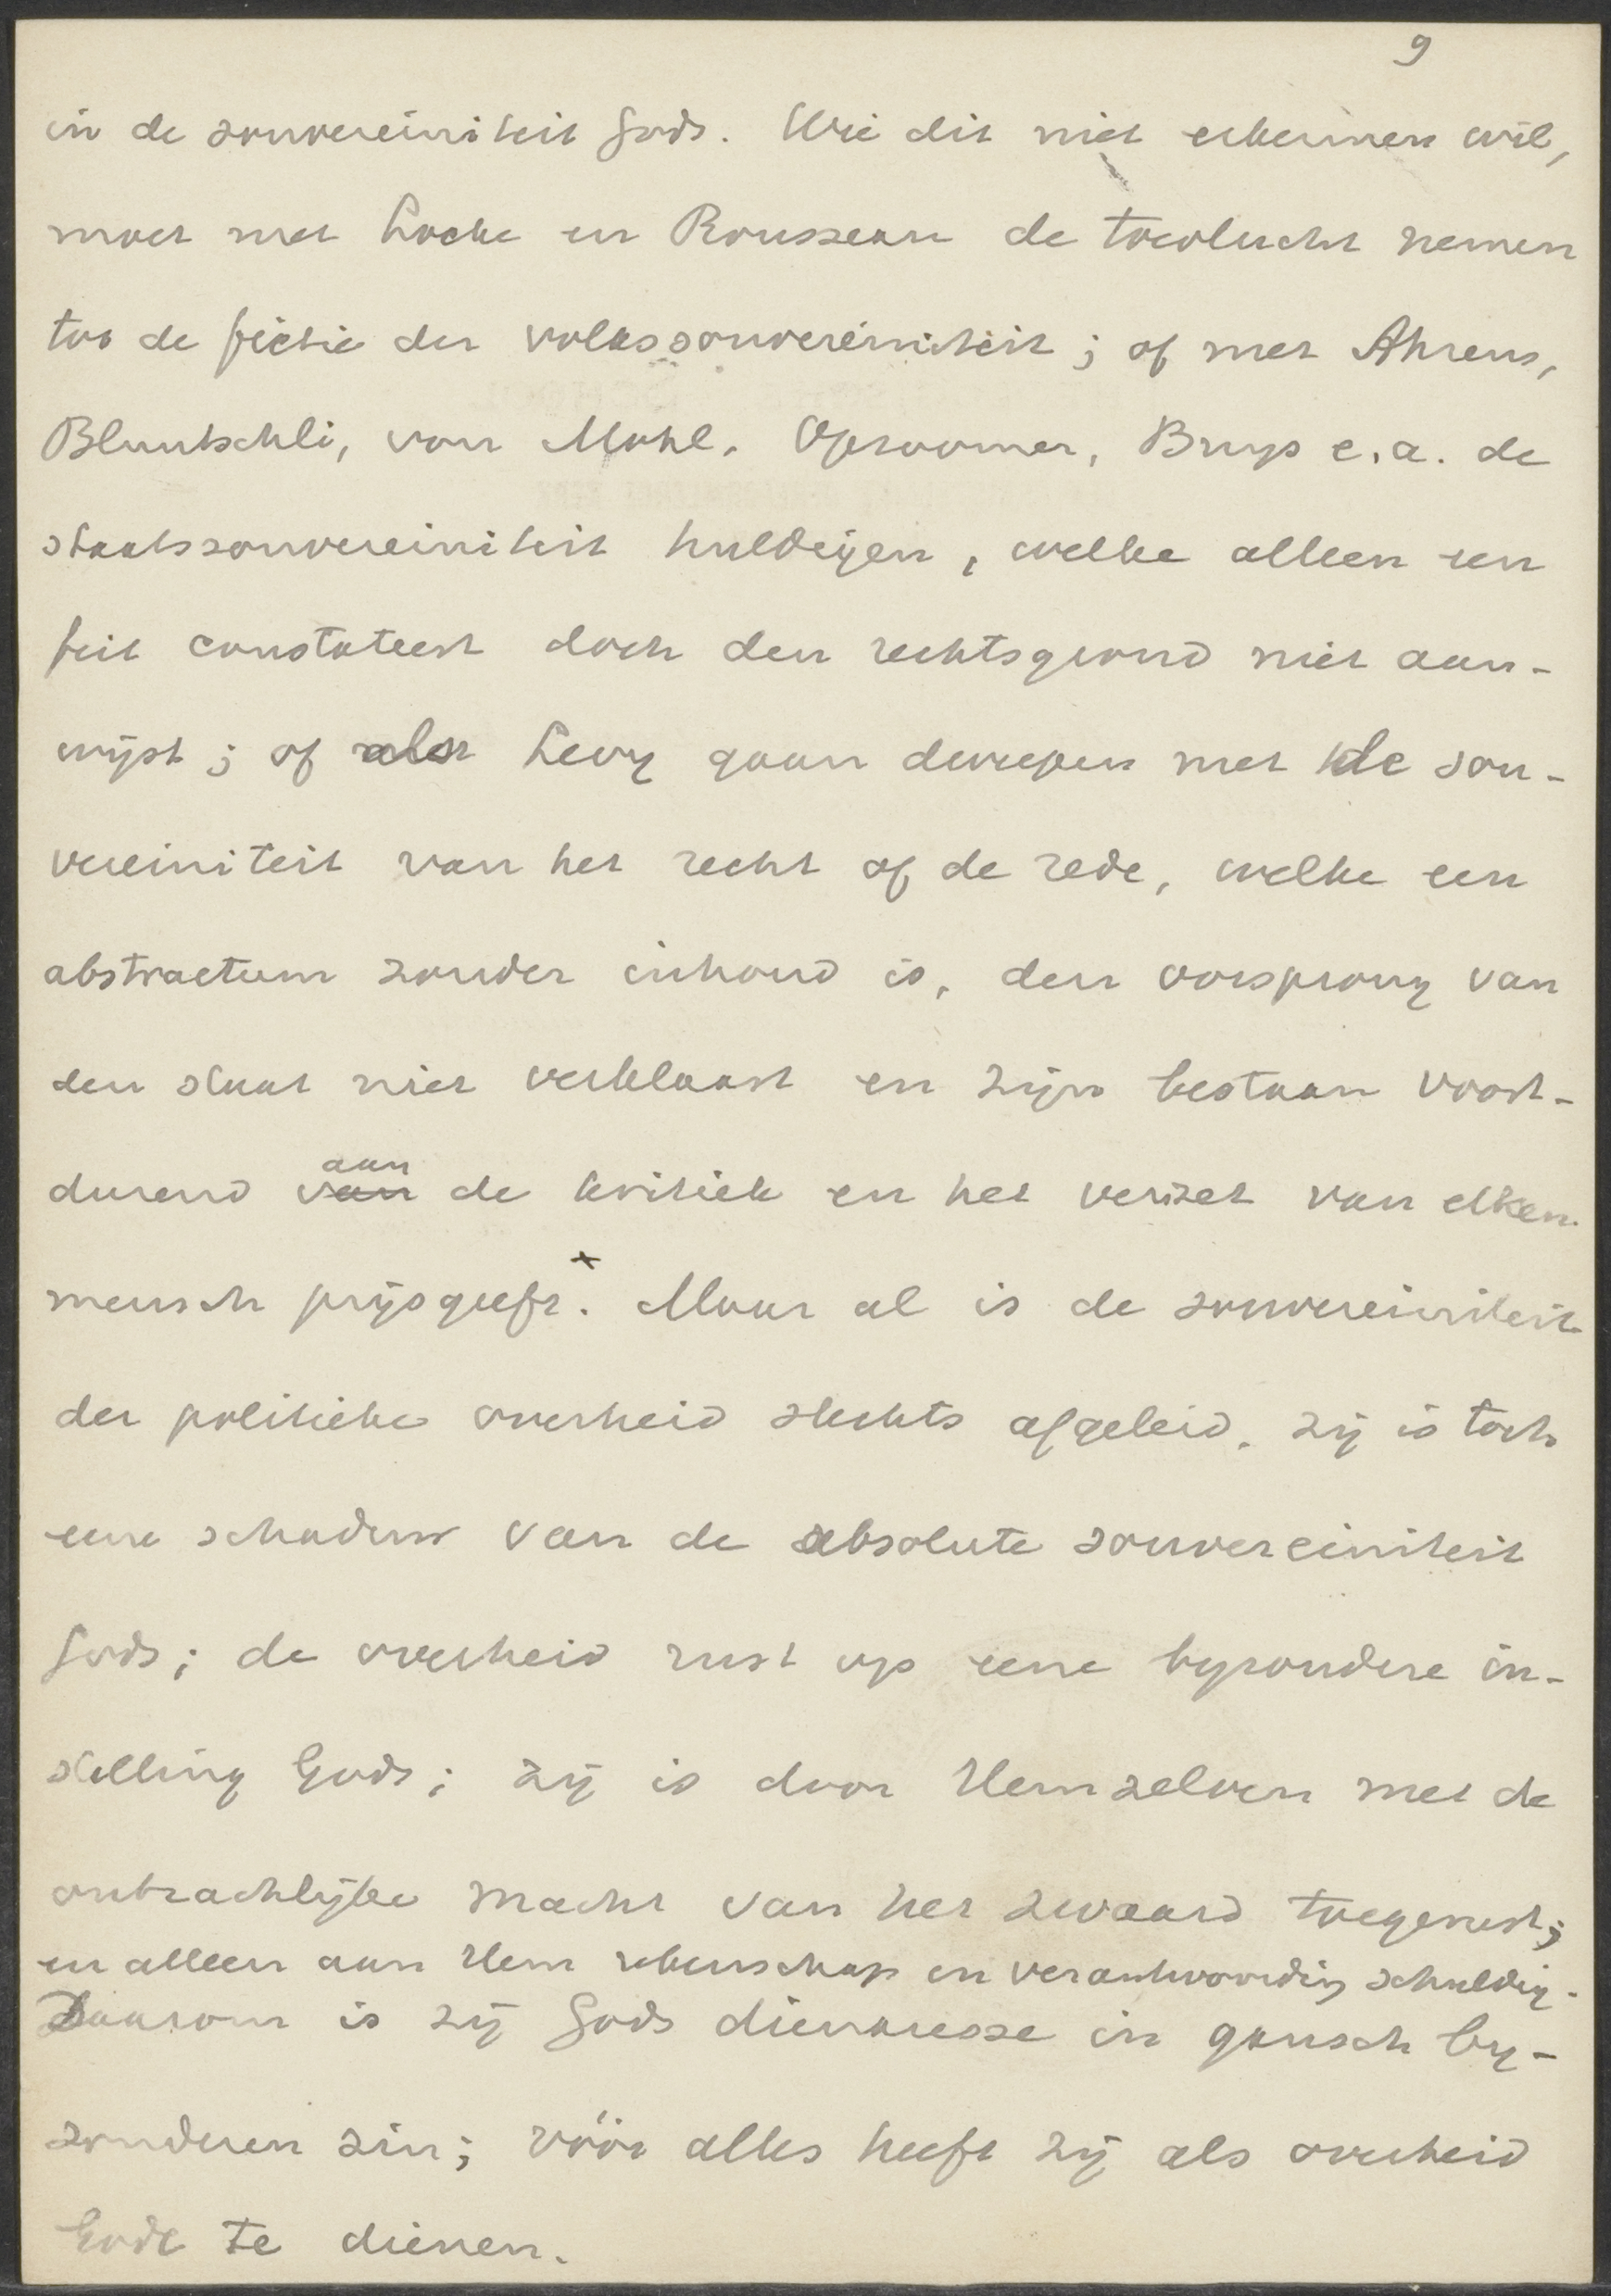 9
in de souvereiniteit Gods. Wie dit niet erkennen wil,
moet met Locke en Rousseau de toevlucht nemen
tot de fictie der volkssouvereiniteit; of met Ahrens,
Bluntschli, von Mohl, Opzoomer, Buys e.a. de
staatssouvereiniteit huldigen, welke alleen een
feit constateert doch den rechtsgrond niet aan-
wijst; of als Levy gaan dweepen met de sou-
vereiniteit van het recht of de rede, welke een
abstractum zonder inhoud is, den oorsprong van
den staat niet verklaart en zijn bestaan voort-
aan
durend van de kritiek en het verzet van elken
mensch prijsgeeft.x Maar al is de souvereiniteit
der politieke overheid slechts afgeleid, zij is toch
eene schaduw van de absolute souvereiniteit
Gods; de overheid rust op eene byzondere in-
stelling Gods; zij is door Hemzelven met de
ontzachlijke macht van het zwaard toegerust;
en alleen aan Hem rekenschap en verantwoording schuldig.
Daarom is zij Gods dienaresse in gansch by-
zonderen zin; vóór alles heeft zij als overheid
Gode te dienen.